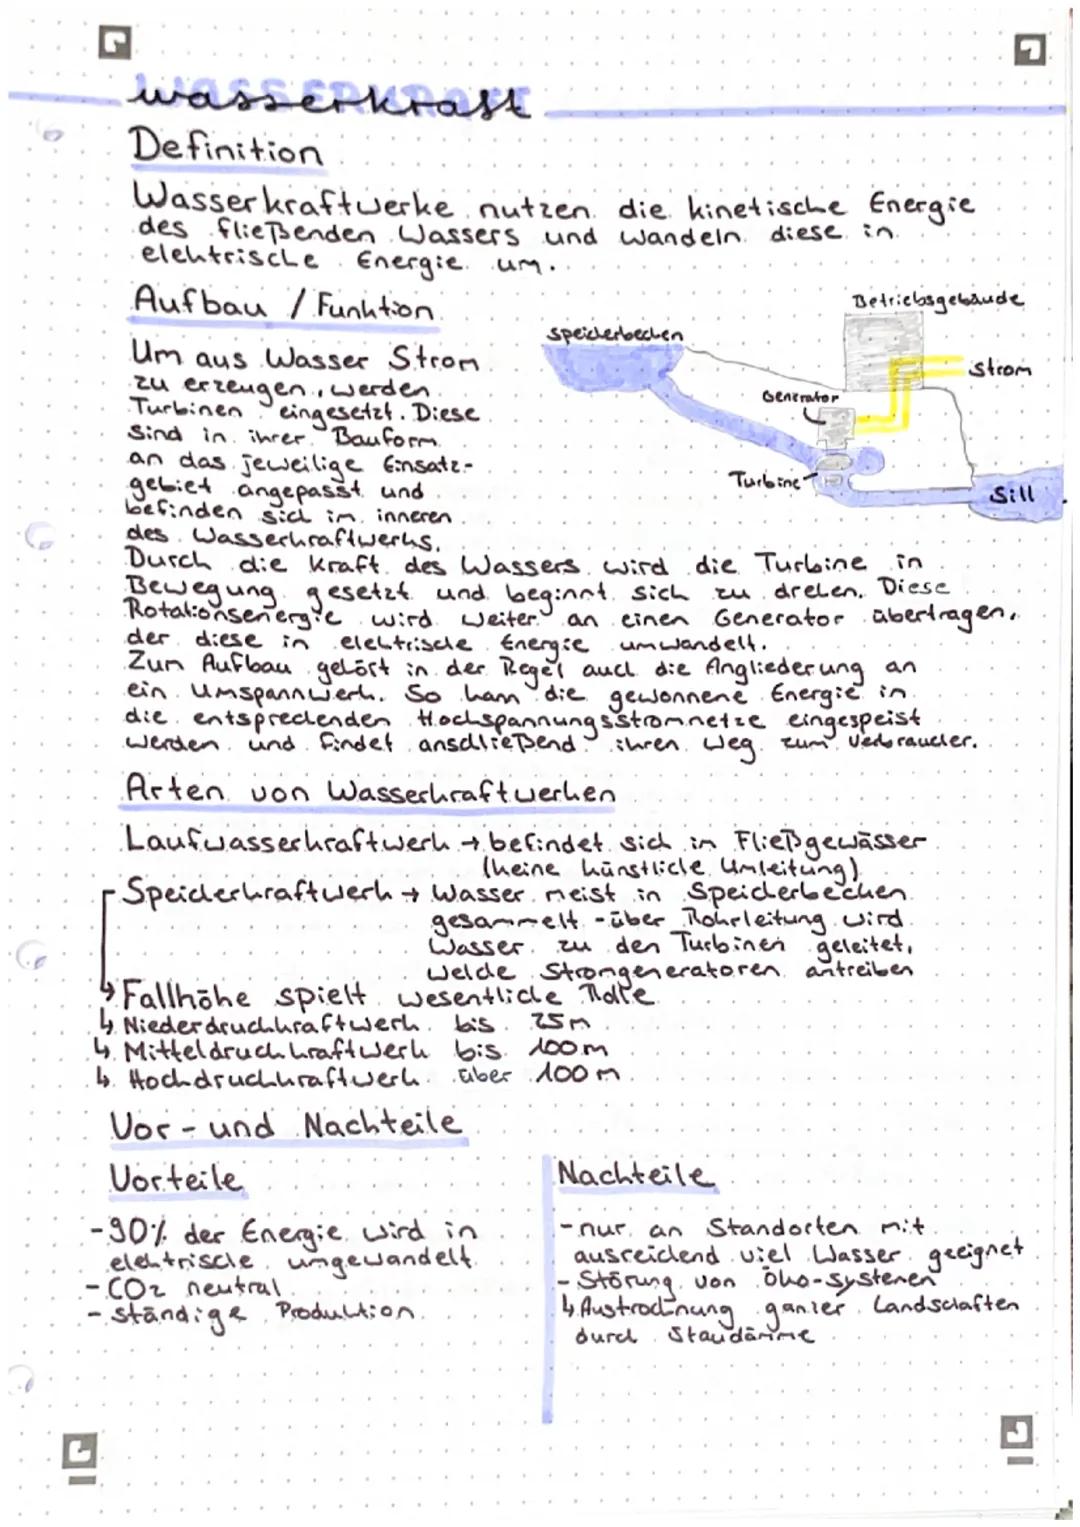 wasserkraft
Definition
Wasserkraftwerke nutzen die kinetische Energie
des fließenden Wassers und wandeln diese in
elektrische Energie um.
Aufbau / Funktion
Um aus Wasser Strom
zu erzeugen, werden
Turbinen eingesetzt. Diese
sind in ihrer Bauform
an das jeweilige Einsatz-
gebiet angepasst und
befinden sich im inneren
des Wasserkraftwerks.
Betriebsgebäude
Speicherbecken
Strom
Generator
Turbine
Sill
Durch die Kraft des Wassers wird die Turbine in
Bewegung gesetzt und beginnt sich zu drehen. Diese
Rotationsenergie wird weiter an einen Generator übertragen,
der diese in elektrische Energie umwandelt.
Zum Aufbau gehört in der Regel auch die Angliederung an
ein Umspannwerk. So kann die gewonnene Energie in
die entsprechenden Hochspannungsstromnetze eingespeist
werden und findet anschließend ihren Weg zum Verbraucher.
Arten von Wasserkraftwerken
Laufwasserkraftwerk → befindet sich im Fließgewässer
(keine künstliche Umleitung)
Speicherkraftwerk → Wasser meist in Speicherbecken
gesammelt - über Rohrleitung wird
Wasser zu den Turbinen geleitet,
welche Stromgeneratoren antreiben
↳ Fallhöhe spielt wesentliche Rolle
↳ Niederdruckkraftwerk bis 25m
↳ Mitteldruckkraftwerk bis 100m
↳ Hochdruckkraftwerk über 100m
Vor- und Nachteile
Vorteile
-90% der Energie wird in
elektrische umgewandelt
- CO2 neutral
- ständige Produktion
Nachteile
- nur an Standorten mit
ausreichend viel Wasser geeignet
- Störung von Öko-systemen
↳ Austrocknung ganzer Landschaften
durch Staudämme